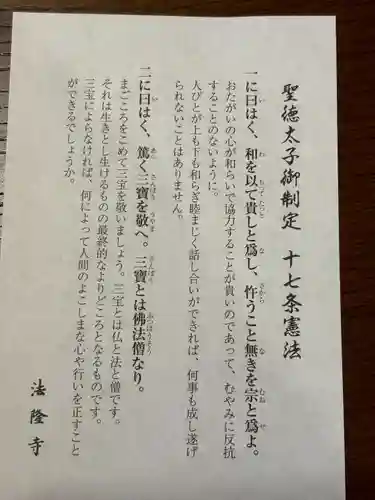 聖徳太子御制定　十七条憲法
一に曰はく、和を以て貴しと爲し、忤うこと無きを宗と爲よ。
おたがいの心が和らいで協力することが貴いのであって、むやみに反抗
することのないように。
人びとが上も下も和らぎ睦まじく話し合いができれば、何事も成し遂げ
られないことはありません。
二に曰はく、篤く三寶を敬へ。三寶とは佛法僧なり。
まごころをこめて三宝を敬いましょう。三宝とは仏と法と僧です。
それは生きとし生けるものの最終的なよりどころとなるものです。
三宝によらなければ、何によって人間のよこしまな心や行いを正すこと
ができるでしょうか。
法隆寺